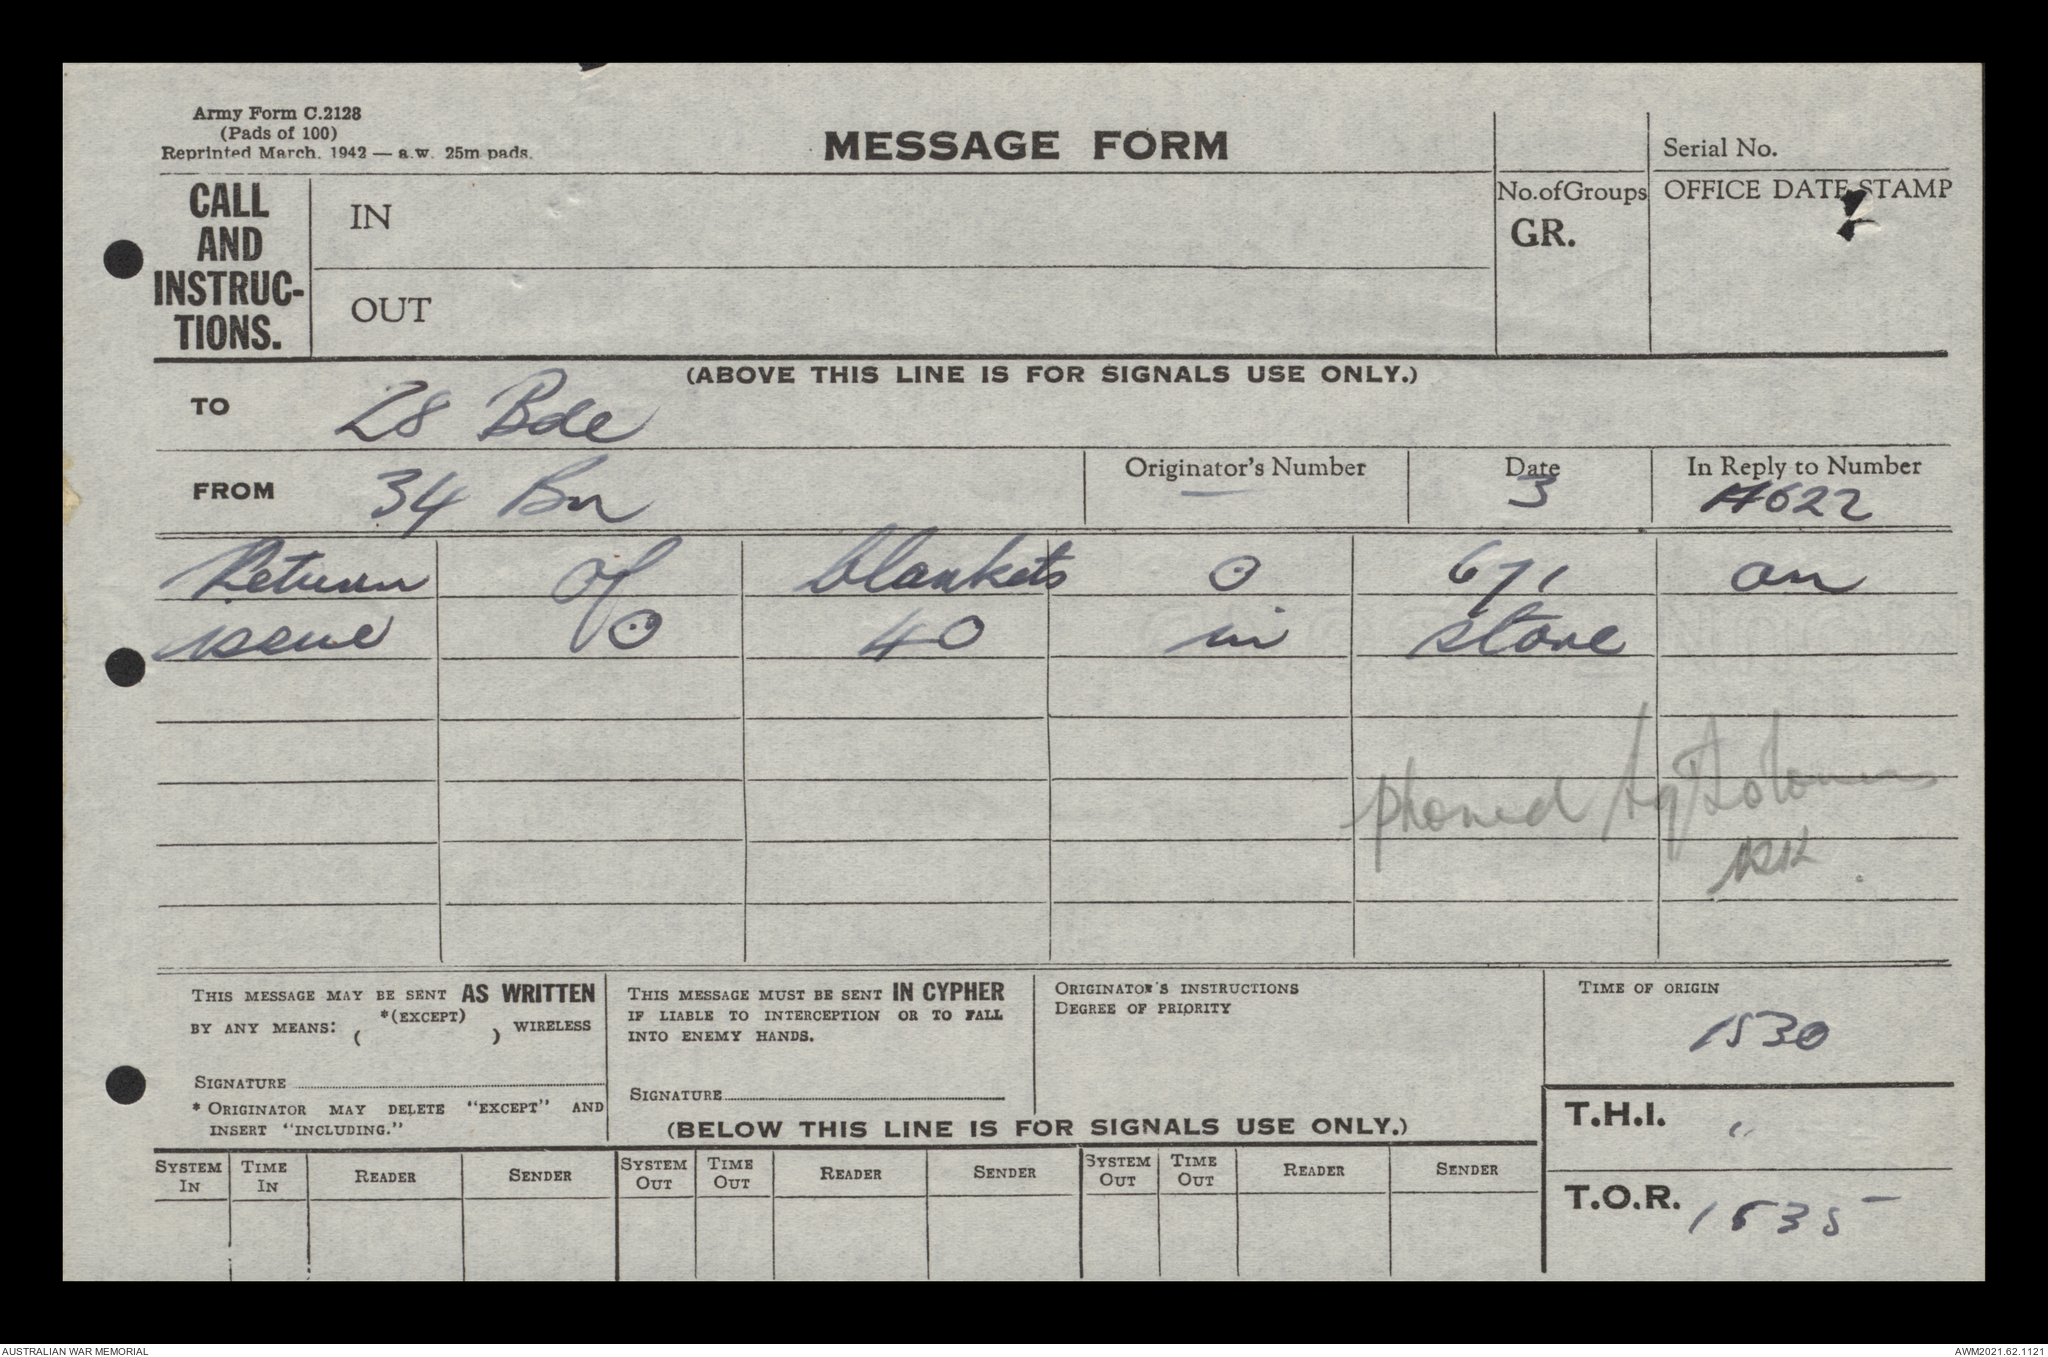 Army Form C.2128
(Pads of 100)
Reprinted March, 1942 — a.w. 25m pads.
MESSAGE FORM
Serial No.
CALL AND INSTRUC-TIONS.
IN
OUT
No.ofGroups
GR.
OFFICE DATE STAMP
(ABOVE THIS LINE IS FOR SIGNALS USE ONLY.)
TO 28 Bde
FROM 34 Bn
Originator's Number —
Date 3
In Reply to Number A622
Return of blankets ⊙ 671 on
issue ⊙ 40 in store
phoned
THIS MESSAGE MAY BE SENT AS WRITTEN
BY ANY MEANS: *(EXCEPT) ( ) WIRELESS
SIGNATURE
* ORIGINATOR MAY DELETE "EXCEPT" AND
INSERT "INCLUDING."
THIS MESSAGE MUST BE SENT IN CYPHER
IF LIABLE TO INTERCEPTION OR TO FALL
INTO ENEMY HANDS.
SIGNATURE
ORIGINATOR'S INSTRUCTIONS
DEGREE OF PRIORITY
TIME OF ORIGIN
1530
T.H.I. "
T.O.R. 1535
(BELOW THIS LINE IS FOR SIGNALS USE ONLY.)
SYSTEM IN TIME IN READER SENDER SYSTEM OUT TIME OUT READER SENDER SYSTEM OUT TIME OUT READER SENDER
AUSTRALIAN WAR MEMORIAL
AWM2021.62.1121